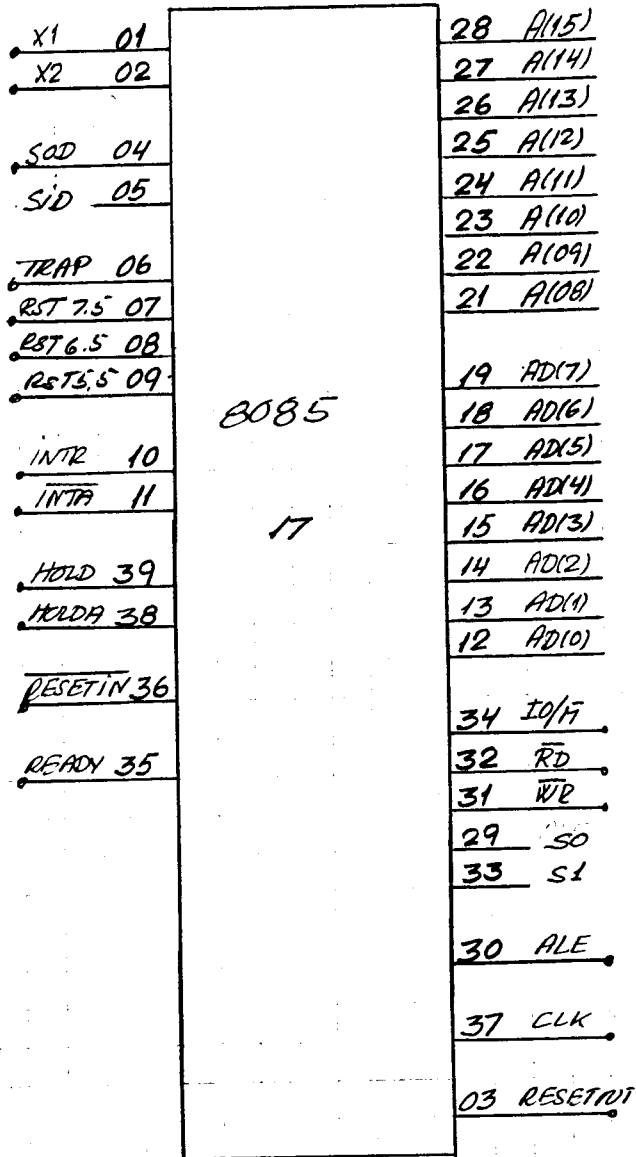 X1 01
X2 02
SOD 04
SiD 05
TRAP 06
RST 7.5 07
RST 6.5 08
RST 5,5 09
INTR 10
I̅N̅T̅A̅ 11
HOLD 39
HOLDA 38
R̅E̅S̅E̅T̅i̅N̅ 36
READY 35
8085
17
28 A(15)
27 A(14)
26 A(13)
25 A(12)
24 A(11)
23 A(10)
22 A(09)
21 A(08)
19 AD(7)
18 AD(6)
17 AD(5)
16 AD(4)
15 AD(3)
14 AD(2)
13 AD(1)
12 AD(0)
34 IO/M̅
32 R̅D̅
31 W̅R̅
29 S0
33 S1
30 ALE
37 CLK
03 RESETOUT